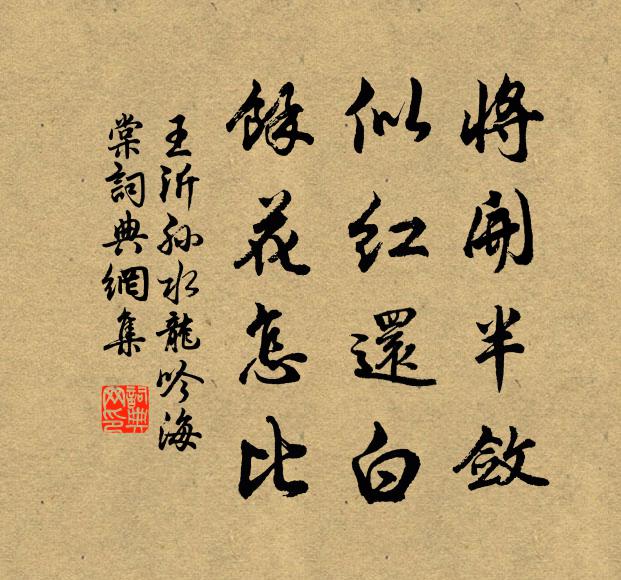 將開半斂
似紅還白
餘花怎比
王沂孫水龍吟海
棠詞典網集
詞典
网印